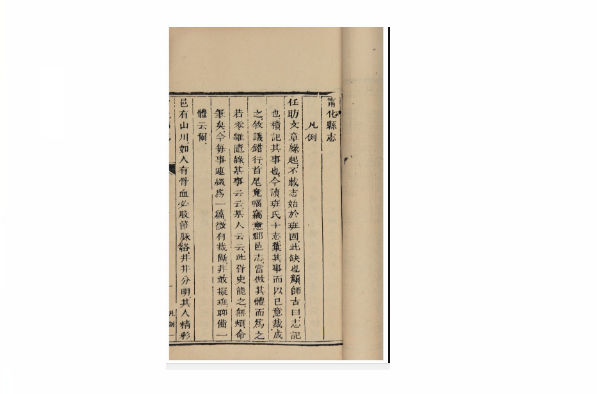 凡例
任昉文章緣起不載志始於班固此缺也顏師古曰志記
也積記其事也今讀班氏十志彙其事而以己意裁成
之敘議錯行首尾竟幅竊意郡邑志當倣其體而為之
若零雜瑣綠某事云云某人云云此胥史能之無煩命
筆矣今每事連綴為一篇微有裁斷非敢擬班聊備一
體云爾
邑有山川如人有骨血必肢節脈絡井井分明其人精彩
凡例